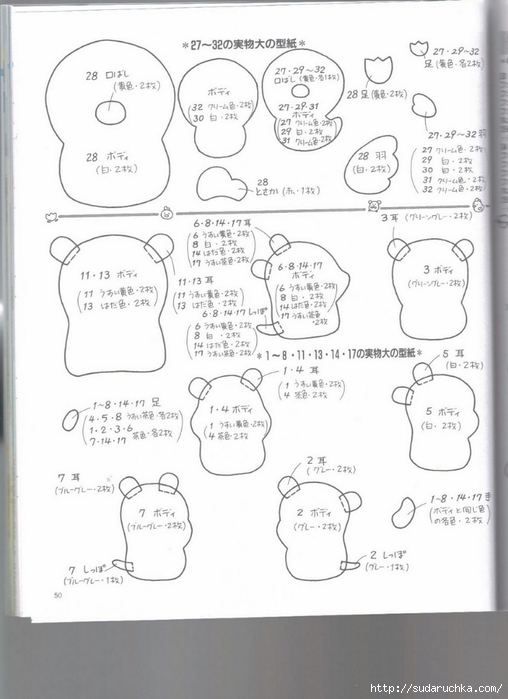 *27〜32の実物大の型紙*
28 口ばし
(黄色・2枚)
28 ボディ
(白・2枚)
ボディ
(32 クリーム色・2枚
30 白・2枚)
27・29〜32
口ばし(黄色・各1枚)
27・29・31
ボディ
(27 クリーム色・2枚
29 白・2枚
31 クリーム色・2枚)
28 足(黄色・2枚)
27・29〜32
足(黄色・各2枚)
28 羽
(白・2枚)
27・29〜32 羽
(27 クリーム色・2枚
29 白・2枚
30 白・2枚
31 クリーム色・2枚
32 クリーム色・2枚)
28
とさか(赤・1枚)
11・13 ボディ
(11 うすい黄色・2枚
13 はだ色・2枚)
11・13 耳
(11 うすい黄色・2枚
13 はだ色・2枚)
6・8・14・17 耳
(6 うすい黄色・2枚
8 白・2枚
14 はだ色・2枚
17 うすい茶色・2枚)
6・8・14・17
ボディ
(6 うすい黄色・2枚
8 白・2枚
14 はだ色・2枚
17 うすい茶色
・2枚)
6・8・14・17 しっぽ
(6 うすい黄色・2枚
8 白・2枚
14 はだ色・2枚
17 うすい茶色・2枚)
3 耳(グリーングレー・2枚)
3 ボディ
(グリーングレー・2枚)
*1〜8・11・13・14・17の実物大の型紙*
1〜8・14・17 足
(4・5・8 うすい茶色・各2枚
1・2・3・6
7・14・17 茶色・各2枚)
1・4 耳
(1 うすい黄色・2枚
4 茶色・2枚)
1・4 ボディ
(1 うすい黄色・2枚
4 茶色・2枚)
5 耳
(白・2枚)
5 ボディ
(白・2枚)
7 耳
(ブルーグレー・2枚)
7 ボディ
(ブルーグレー・2枚)
7 しっぽ
(ブルーグレー・1枚)
2 耳
(グレー・2枚)
2 ボディ
(グレー・2枚)
2 しっぽ
(グレー・1枚)
1〜8・14・17
(ボディと同じ色
の各色・2枚)
50
http://sudaruchka.com/